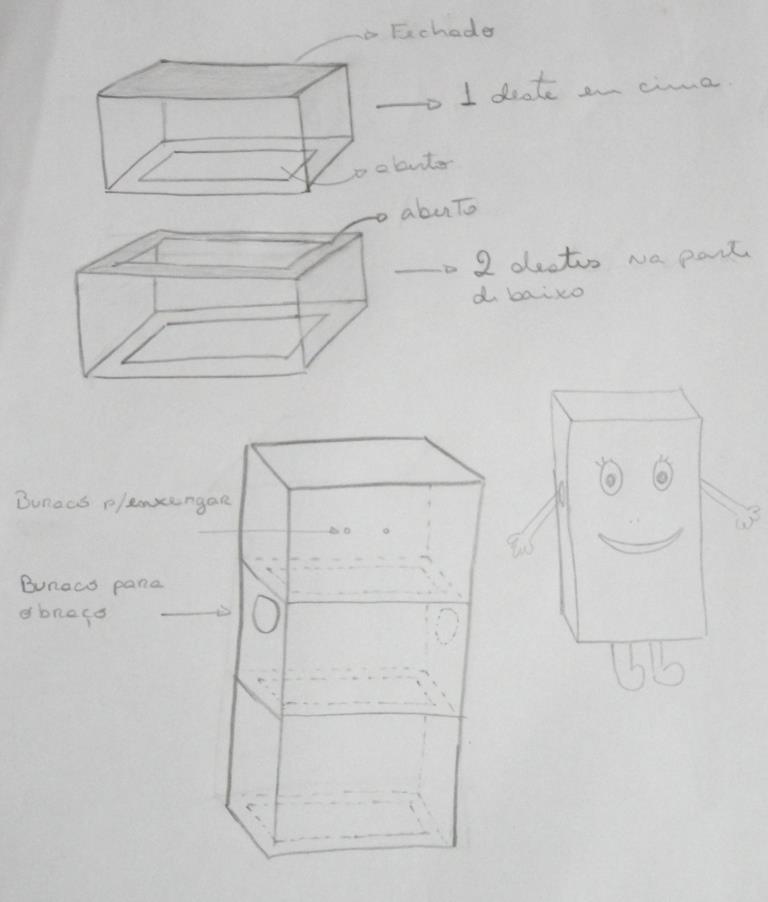 Fechado
1 deste em cima.
aberto
aberto
2 destes na parte
de baixo
Buracos p/enxergar
Buraco para
o braço